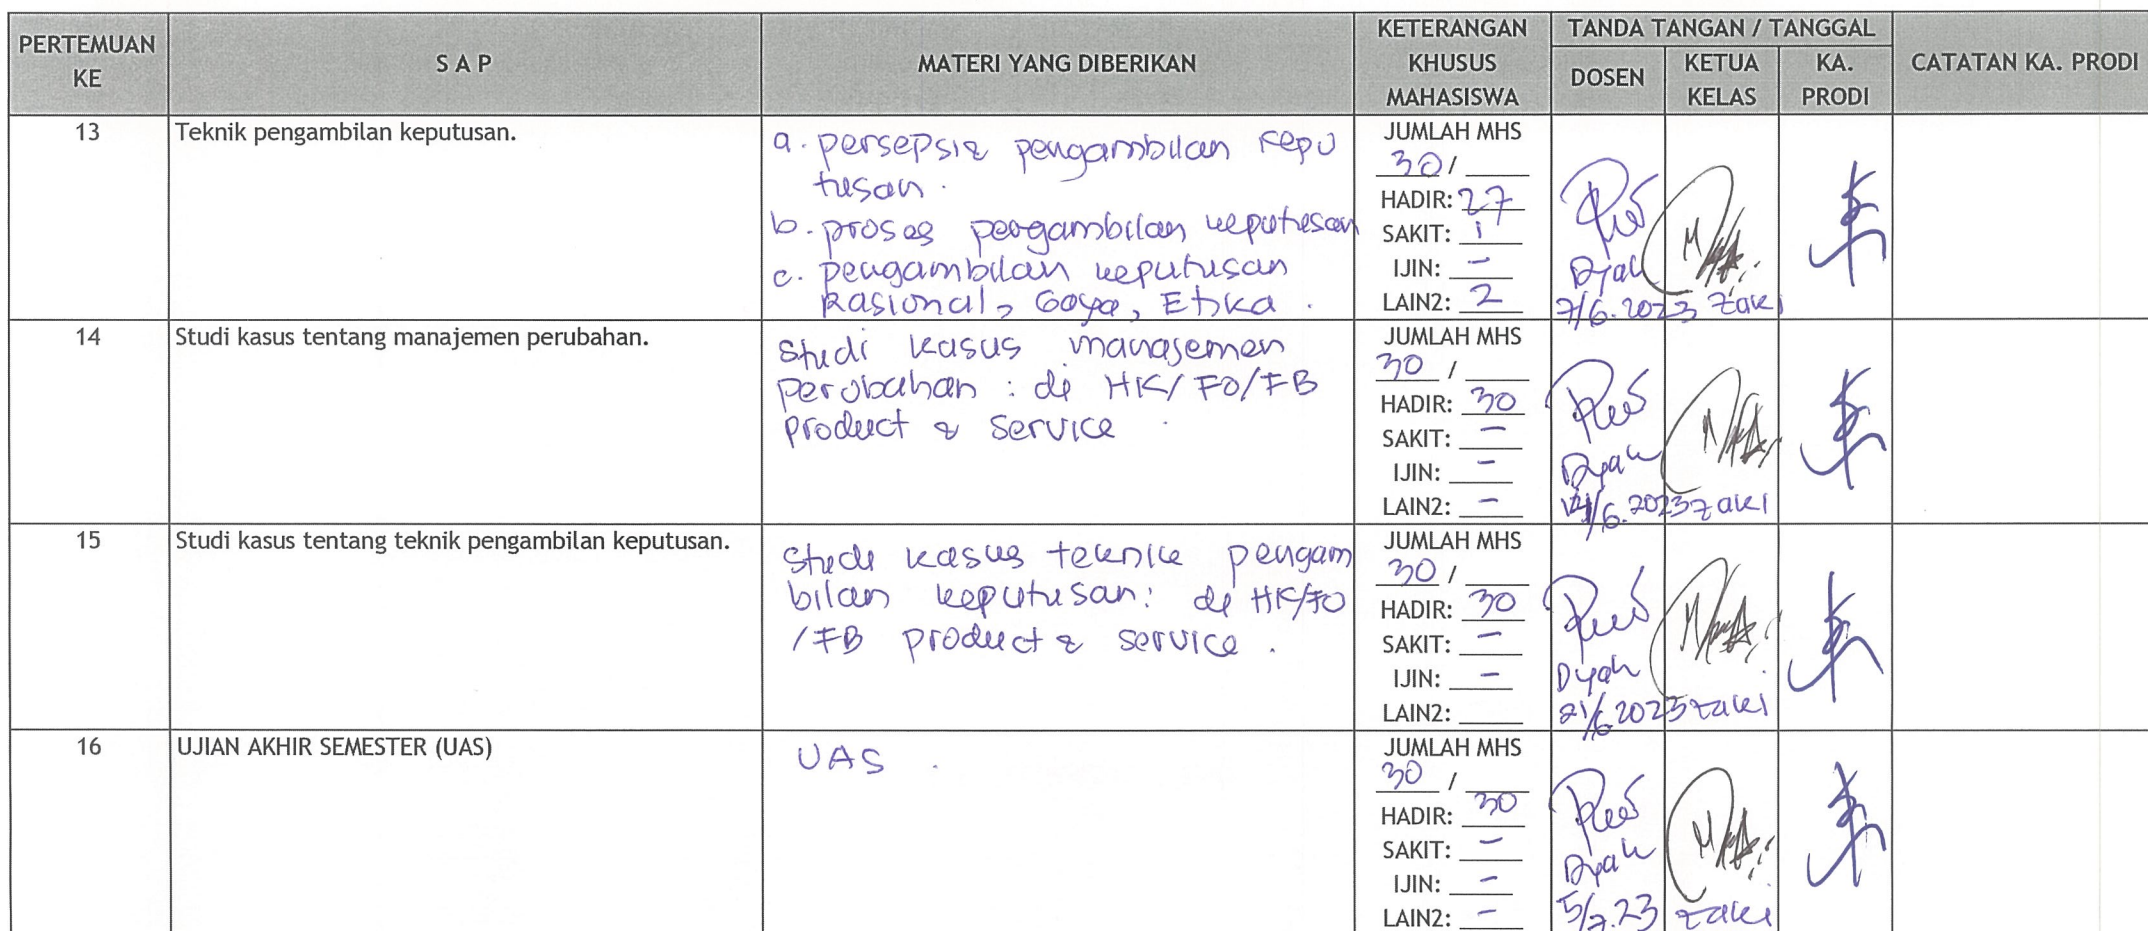 PERTEMUAN KE
S A P
MATERI YANG DIBERIKAN
KETERANGAN KHUSUS MAHASISWA
TANDA TANGAN / TANGGAL
DOSEN
KETUA KELAS
KA. PRODI
CATATAN KA. PRODI
13
Teknik pengambilan keputusan.
a. persepsi2 pengambilan kepu
tusan.
b. proses pengambilan keputusan
c. pengambilan keputusan
Rasional, Gaya, Etika.
JUMLAH MHS
30 /
HADIR: 27
SAKIT: 1
IJIN: -
LAIN2: 2
Dyah
7/6.2023 Zaki
14
Studi kasus tentang manajemen perubahan.
Studi kasus manajemen
perubahan : di HK/FO/FB
product & service
JUMLAH MHS
30 /
HADIR: 30
SAKIT: -
IJIN: -
LAIN2: -
Dyah
14/6.2023 Zaki
15
Studi kasus tentang teknik pengambilan keputusan.
Studi kasus teknik pengam
bilan keputusan: di HK/FO
/FB product & service.
JUMLAH MHS
30 /
HADIR: 30
SAKIT: -
IJIN: -
LAIN2:
Dyah
21/6.2023 Zaki
16
UJIAN AKHIR SEMESTER (UAS)
UAS.
JUMLAH MHS
30 /
HADIR: 30
SAKIT: -
IJIN: -
LAIN2: -
Dyah
5/7.23 Zaki